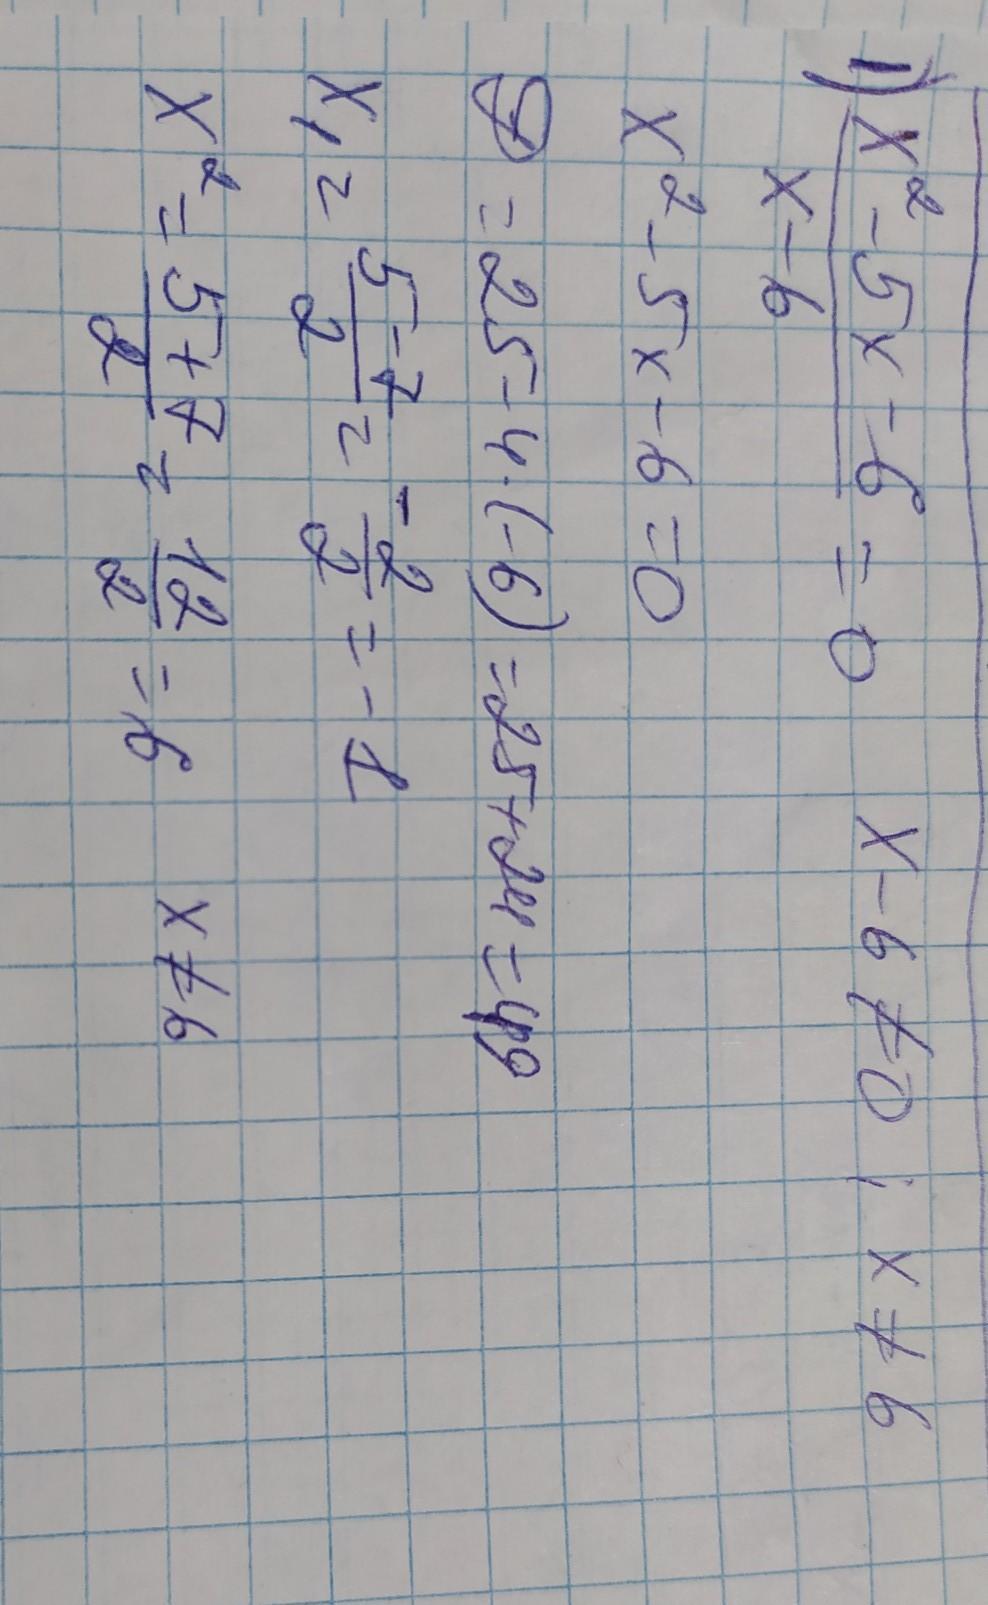 1) x² - 5x - 6 / x - 6 = 0   x - 6 ≠ 0 ; x ≠ 6
x² - 5x - 6 = 0
D = 25 - 4 · (-6) = 25 + 24 = 49
x₁ = 5 - 7 / 2 = - 2 / 2 = - 1
x² = 5 + 7 / 2 = 12 / 2 = 6   x ≠ 6